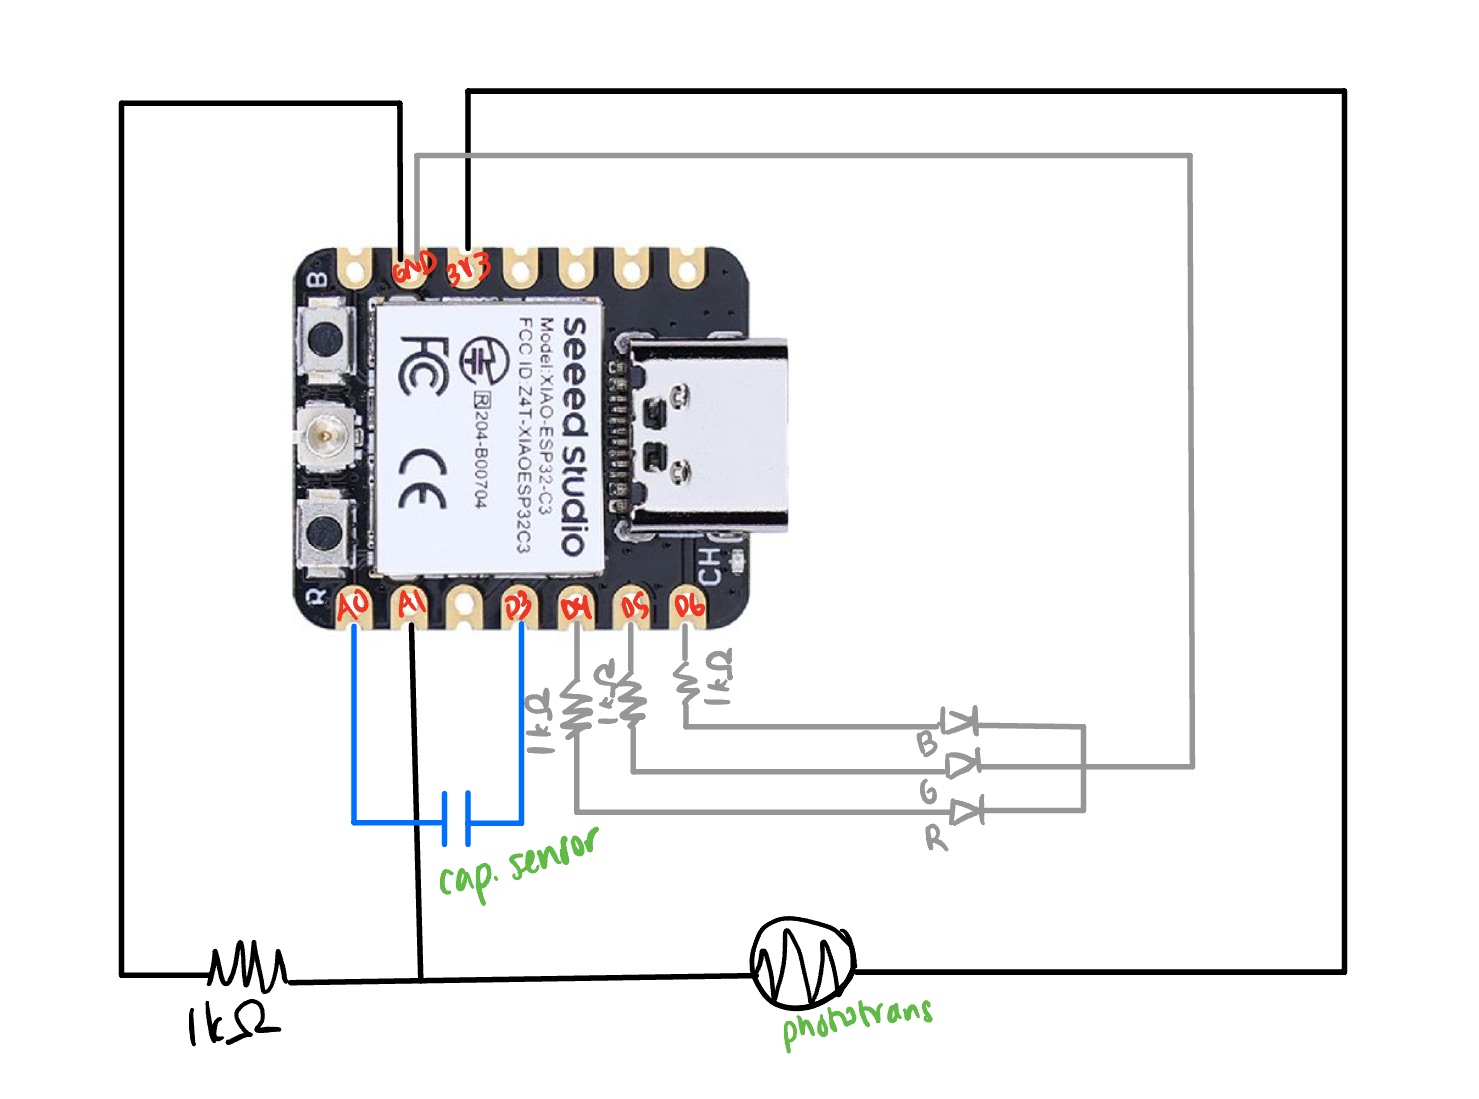 GND
3V3
B
seeed studio
Model:XIAO-ESP32-C3
FCC ID:Z4T-XIAOESP32C3
R 204-B00704
FC
CE
CH
R
A0
A1
D3
D4
D5
D6
1kΩ
1kΩ
1kΩ
B
G
R
cap. sensor
1kΩ
phototrans